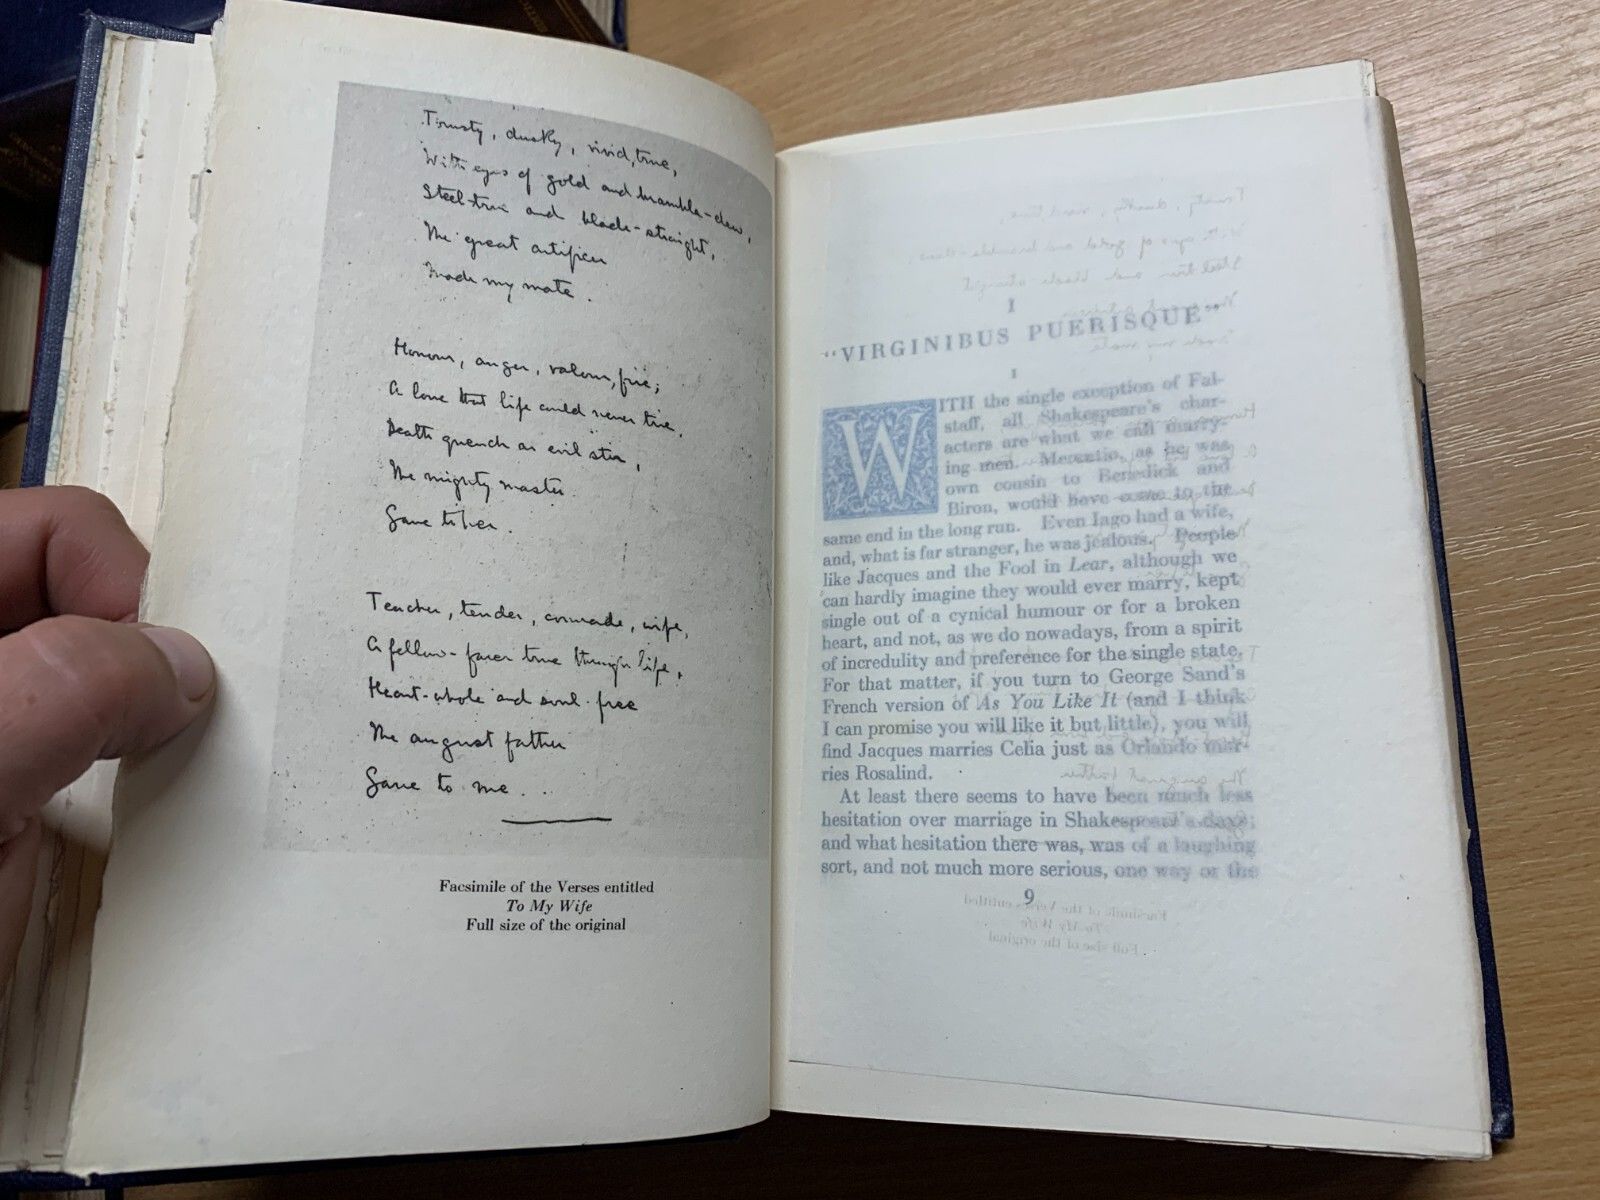 Trusty, dusky, vivid, true,
With eyes of gold and bramble-dew,
Steel-true and blade-straight,
The great artificer
Made my mate.
Honour, anger, valour, fire;
A love that life could never tire,
Death quench or evil stir,
The mighty master
Gave to her.
Teacher, tender, comrade, wife,
A fellow-farer true through life,
Heart-whole and soul-free
The august father
Gave to me.
Facsimile of the Verses entitled
To My Wife
Full size of the original
I
"VIRGINIBUS PUERISQUE"
1
WITH the single exception of Fal-
staff, all Shakespeare's char-
acters are what we call marry-
ing men. Mercutio, as he was
own cousin to Benedick and
Biron, would have come to the
same end in the long run. Even Iago had a wife,
and, what is far stranger, he was jealous. People
like Jacques and the Fool in Lear, although we
can hardly imagine they would ever marry, kept
single out of a cynical humour or for a broken
heart, and not, as we do nowadays, from a spirit
of incredulity and preference for the single state.
For that matter, if you turn to George Sand's
French version of As You Like It (and I think
I can promise you will like it but little), you will
find Jacques marries Celia just as Orlando mar-
ries Rosalind.
At least there seems to have been much less
hesitation over marriage in Shakespeare's days;
and what hesitation there was, was of a laughing
sort, and not much more serious, one way or the
9